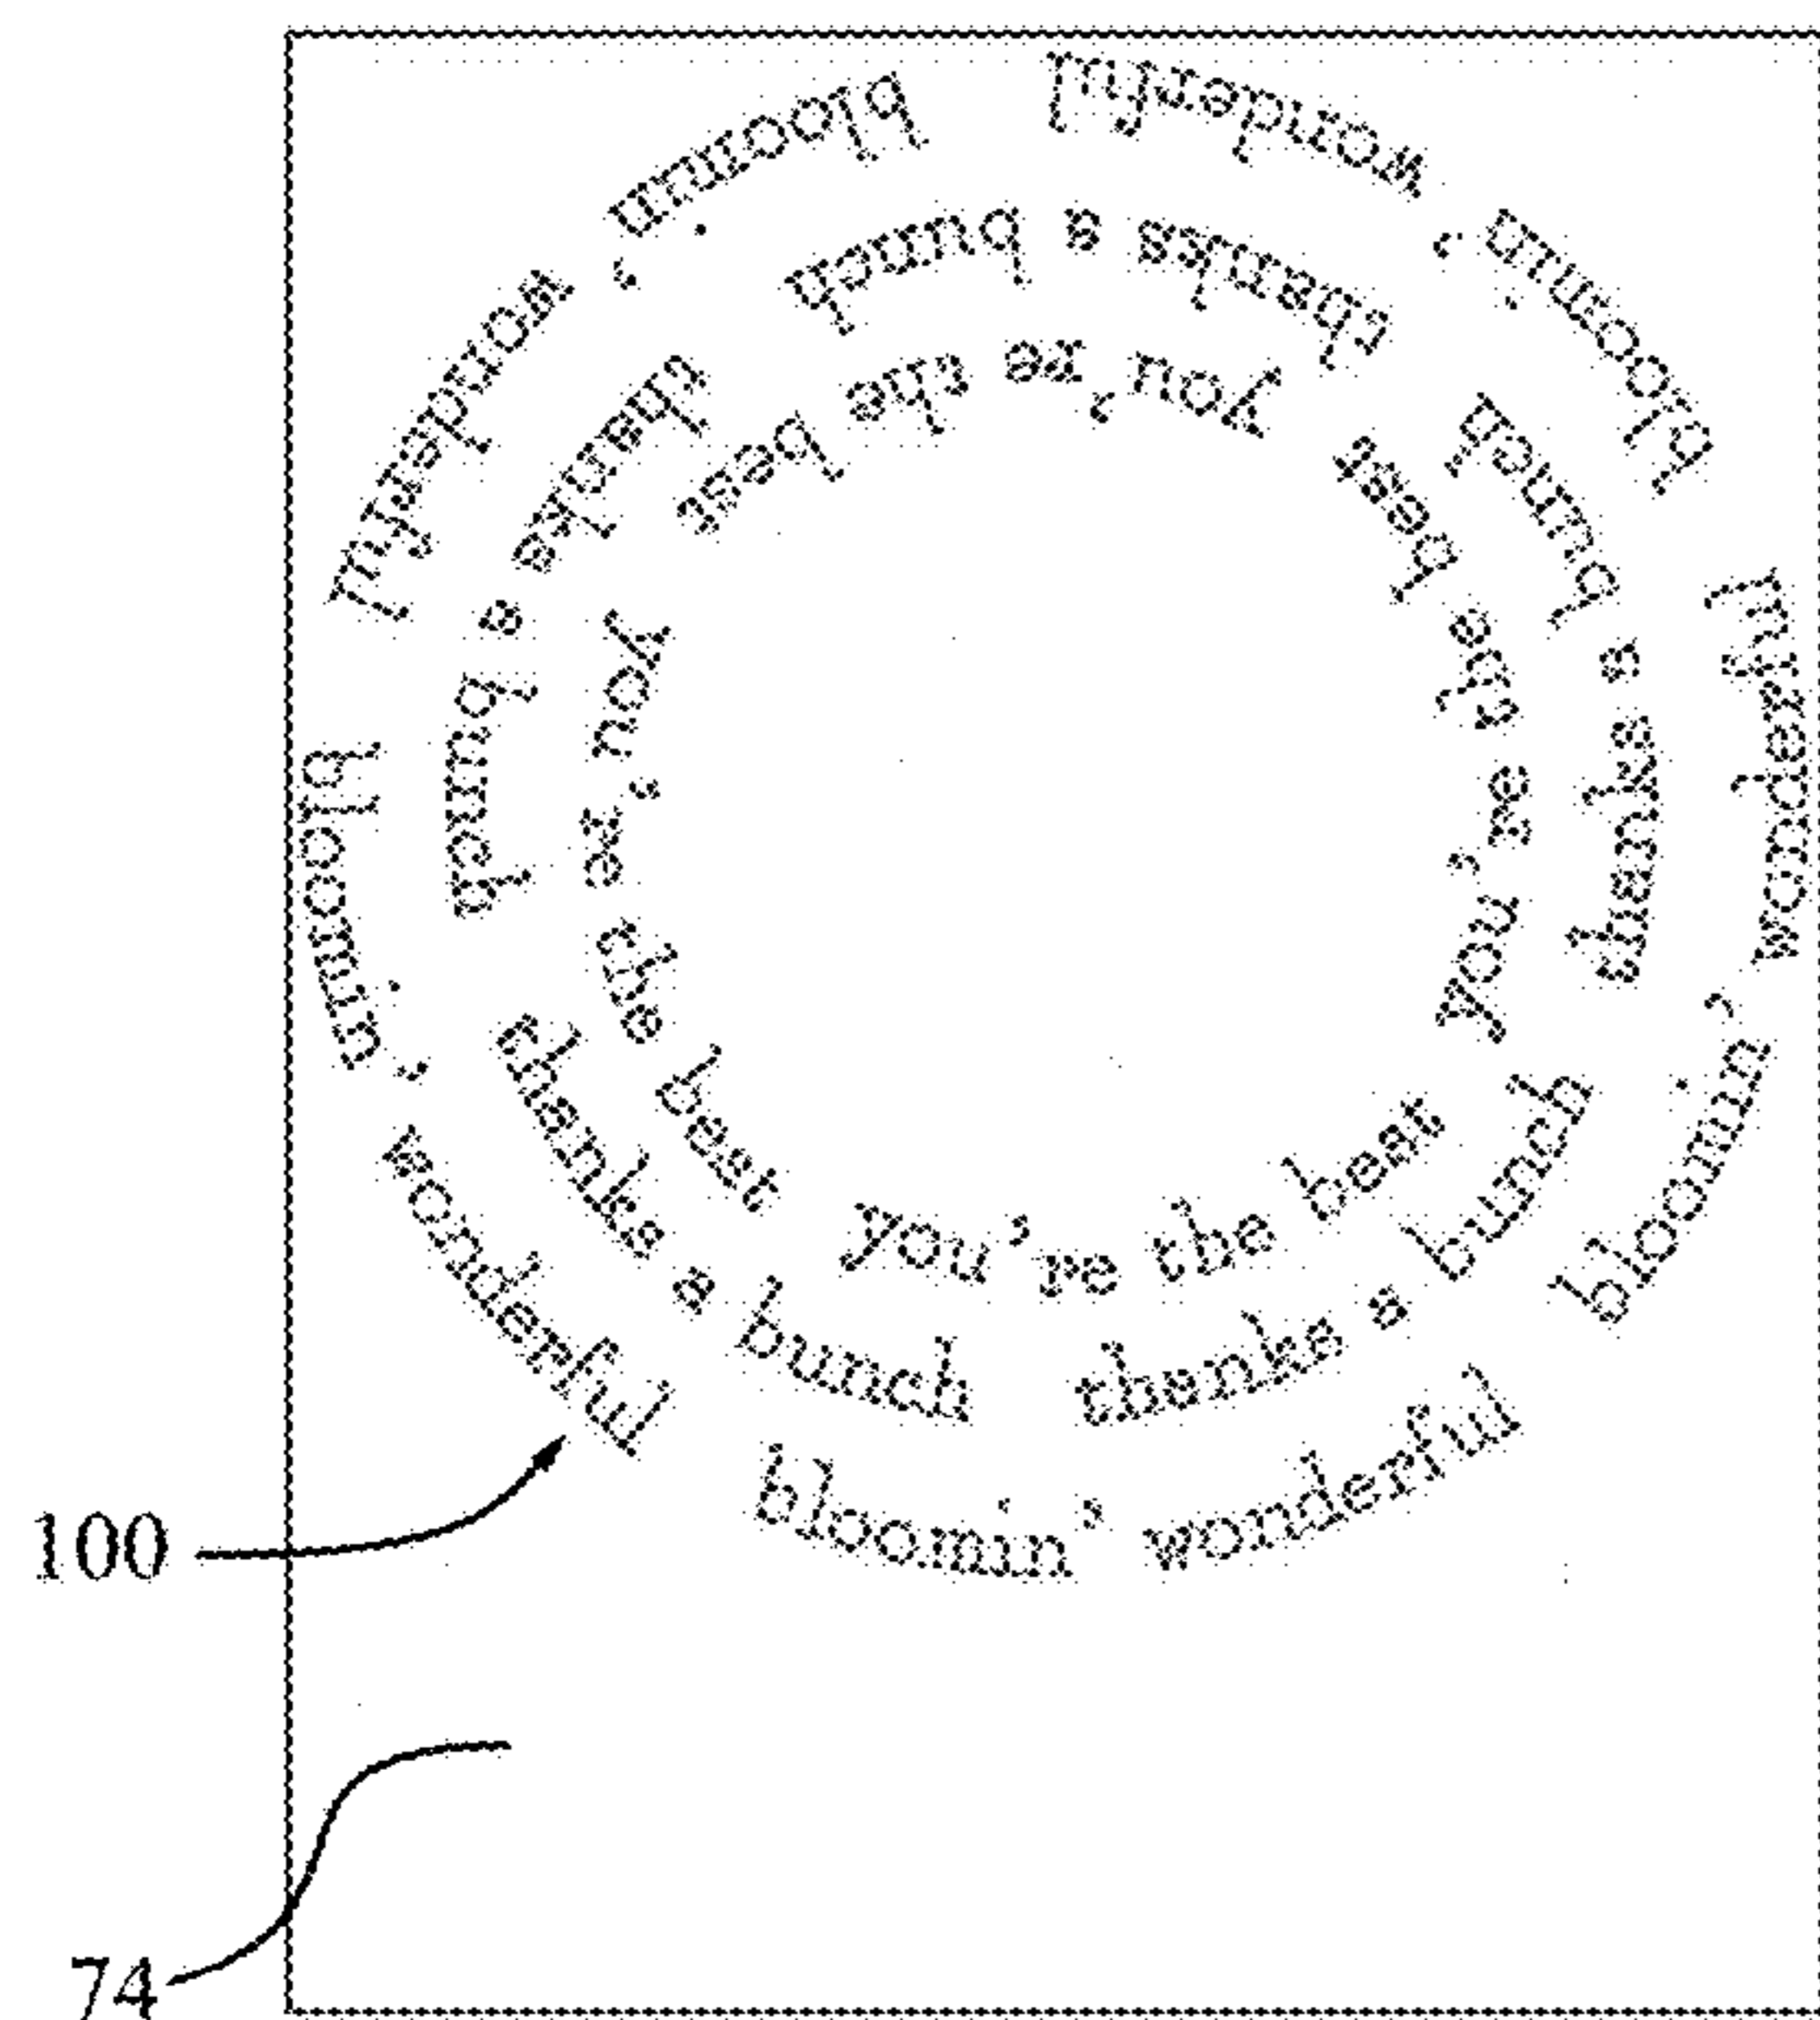 bloomin' wonderful bloomin' wonderful bloomin' wonderful bloomin' wonderful bloomin' wonderful
thanks a bunch thanks a bunch thanks a bunch thanks a bunch thanks a bunch
you're the best you're the best you're the best you're the best
100
74